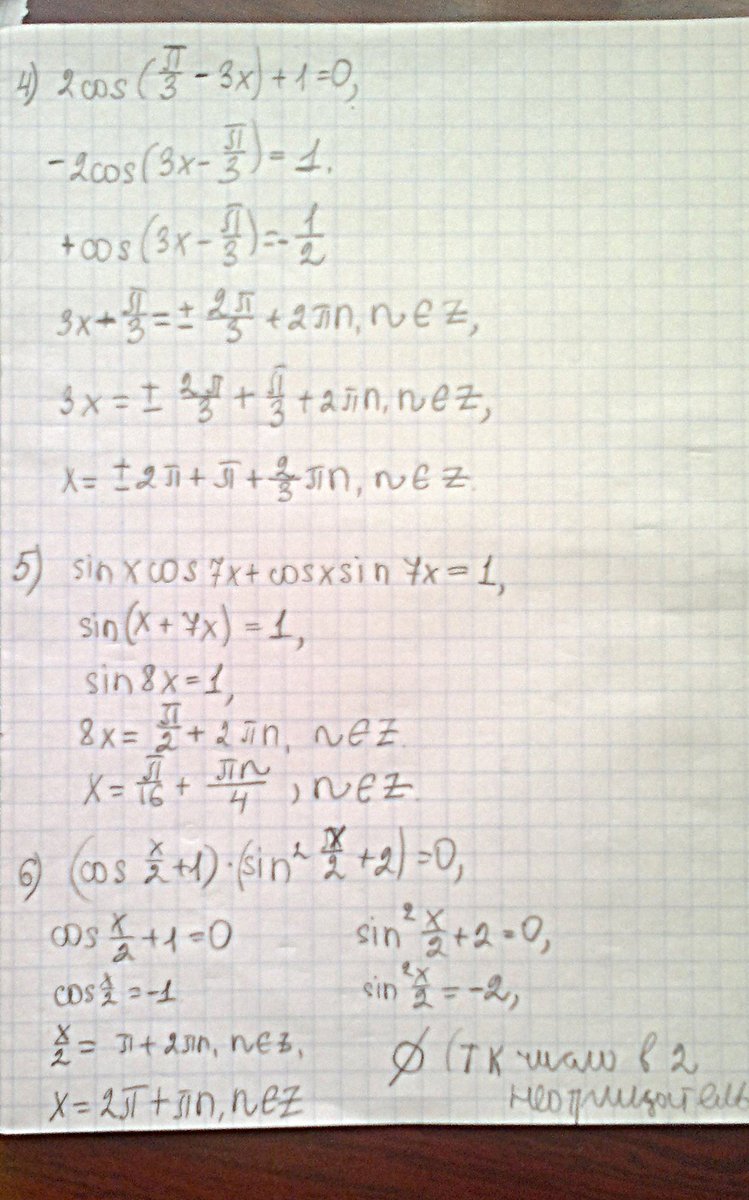 4) 2cos(π/3 - 3x) + 1 = 0,
-2cos(3x - π/3) = 1.
+cos(3x - π/3) = -1/2
3x - π/3 = ± 2π/3 + 2πn, n ∈ Z,
3x = ± 2π/3 + π/3 + 2πn, n ∈ Z,
x = ± 2π + π + 2/3 πn, n ∈ Z.
5) sin x cos 7x + cos x sin 7x = 1,
sin(x + 7x) = 1,
sin 8x = 1,
8x = π/2 + 2πn, n ∈ Z.
x = π/16 + πn/4, n ∈ Z.
6) (cos x/2 + 1)·(sin² x/2 + 2) = 0,
cos x/2 + 1 = 0 sin² x/2 + 2 = 0,
cos x/2 = -1 sin² x/2 = -2,
x/2 = π + 2πn, n ∈ Z, ∅ (т к число в 2
x = 2π + πn, n ∈ Z